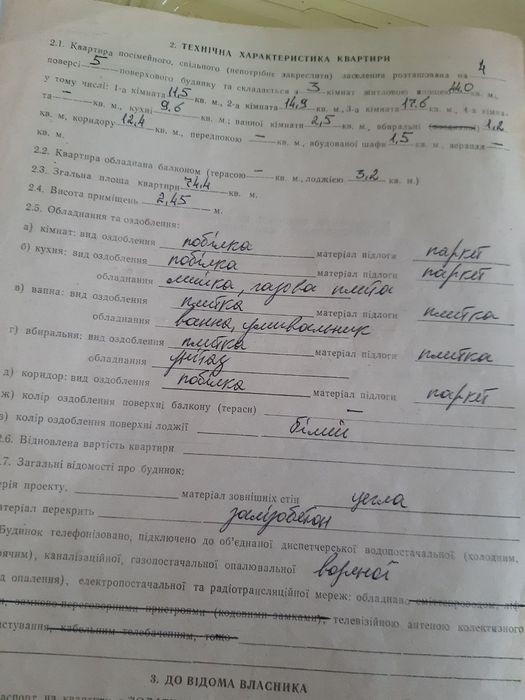 2. ТЕХНІЧНА ХАРАКТЕРИСТИКА КВАРТИРИ
2.1. Квартира посімейного, спільного (непотрібне закреслити) заселення розташована на 4
поверсі 5 поверхового будинку та складається з 3 кімнат житловою площею 44.0 кв. м,
у тому числі: 1-а кімната 11,5 кв. м., 2-а кімната 14,9 кв. м., 3-а кімната 17.6 кв. м., 4-а кімна-
та — кв. м., кухні 9.6 кв. м.; ванної кімнати 2,5 кв. м., вбиральні 1,2
кв. м, коридору 12,4 кв. м., передпокою — кв. м., вбудованої шафи 1,5 кв. м., веранди —
кв. м.
2.2. Квартира обладнана балконом (терасою — кв. м., лоджією 3,2 кв. м.)
2.3. Загальна площа квартири 74,4 кв. м.
2.4. Висота приміщень 2,45 м.
2.5. Обладнання та оздоблення:
а) кімнат: вид оздоблення побілка матеріал підлоги паркет
б) кухня: вид оздоблення побілка матеріал підлоги паркет
обладнання мийка, газова плита
в) ванна: вид оздоблення плитка матеріал підлоги плитка
обладнання ванна, умивальник
г) вбиральня: вид оздоблення плитка матеріал підлоги плитка
обладнання унітаз
д) коридор: вид оздоблення побілка матеріал підлоги паркет
ж) колір оздоблення поверхні балкону (тераси) —
з) колір оздоблення поверхні лоджії білий
2.6. Відновлена вартість квартири
2.7. Загальні відомості про будинок:
ерія проекту. матеріал зовнішніх стін цегла
атеріал перекрить залізобетон
Будинок телефонізовано, підключено до об'єднаної диспетчерської водопостачальної (холодним,
рячим), каналізаційної, газопостачальної опалювальної водяної
д опалення), електропостачальної та радіотрансляційної мереж: обладнано сміттєпроводом, ліф-
м, замково-переговорними пристроями (кодовими замками), телевізійною антеною колективного
истування, кабельним телебаченням, тощо
3. ДО ВІДОМА ВЛАСНИКА